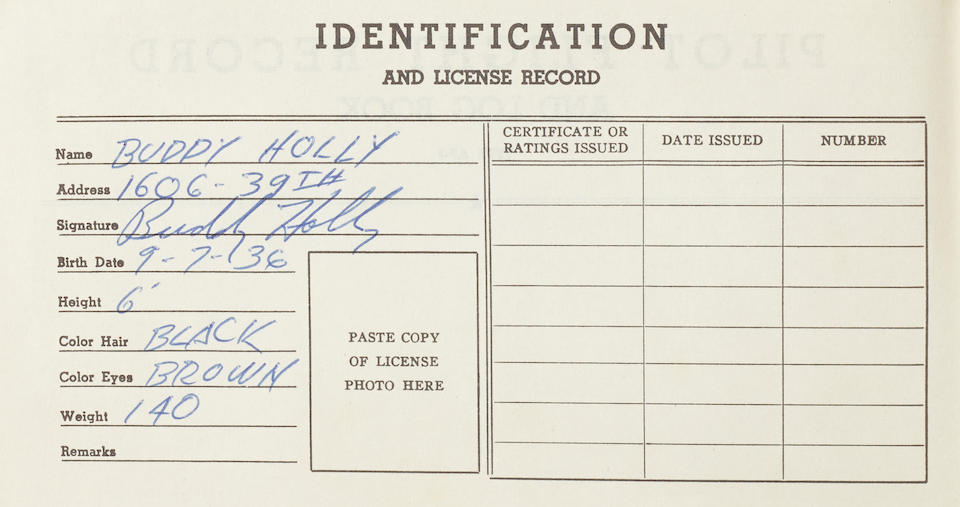 IDENTIFICATION
AND LICENSE RECORD
Name BUDDY HOLLY
Address 1606-39TH
Signature Buddy Holly
Birth Date 9-7-'36
Height 6'
Color Hair BLACK
Color Eyes BROWN
Weight 140
Remarks
PASTE COPY
OF LICENSE
PHOTO HERE
CERTIFICATE OR
RATINGS ISSUED
DATE ISSUED
NUMBER
PILOT FLIGHT RECORD
AND LOG BOOK